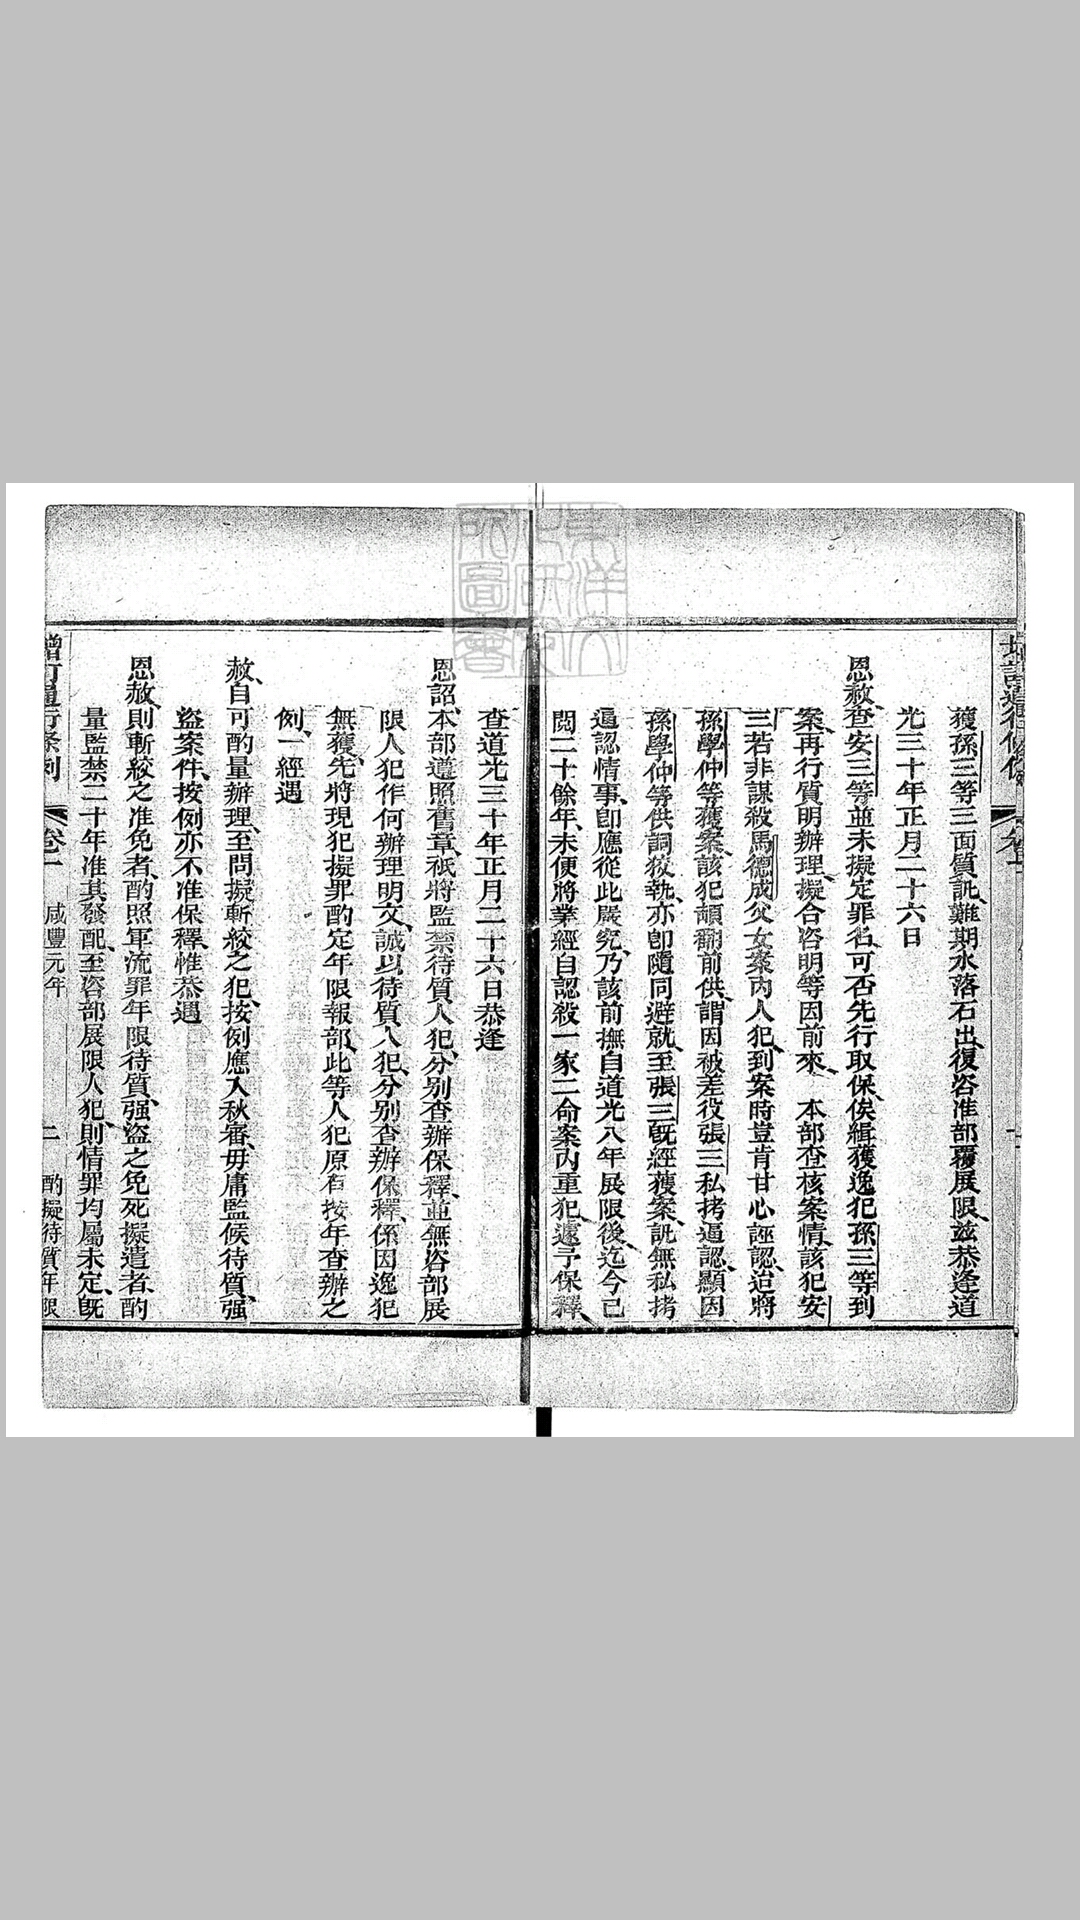 獲孫三等三面質訊難期水落石出復咨准部覆展限茲恭逢道
光三十年正月二十六日
恩赦查安三等並未擬定罪名可否先行取保俟緝獲逸犯孫三等到
案再行質明辦理擬合咨明等因前來　本部查核案情該犯安
三若非謀殺馬德成父女案內人犯到案時豈肯甘心誣認迨將
孫學仲等獲案該犯頓翻前供謂因被差役張三私拷逼認顯因
孫學仲等供詞狡執亦卽隨同避就至張三旣經獲案訊無私拷
逼認情事卽應從此嚴究乃該前撫自道光八年展限後迄今已
閱二十餘年未便將業經自認殺一家二命案內重犯遽予保釋
查道光三十年正月二十六日恭逢
恩詔本部遵照舊章祇將監禁待質人犯分别查辦保釋並無咨部展
限人犯作何辦理明文誠以待質人犯分别查辦保釋係因逸犯
無獲先將現犯擬罪酌定年限報部此等人犯原有按年查辦之
例一經遇
赦自可酌量辦理至問擬斬絞之犯按例應入秋審毋庸監候待質强
盜案件按例亦不准保釋惟恭遇
恩赦則斬絞之准免者酌照軍流罪年限待質强盜之免死擬遣者酌
量監禁二十年准其發配至咨部展限人犯則情罪均屬未定旣
增訂通行條例　卷一　咸豐元年　二　酌擬待質年限